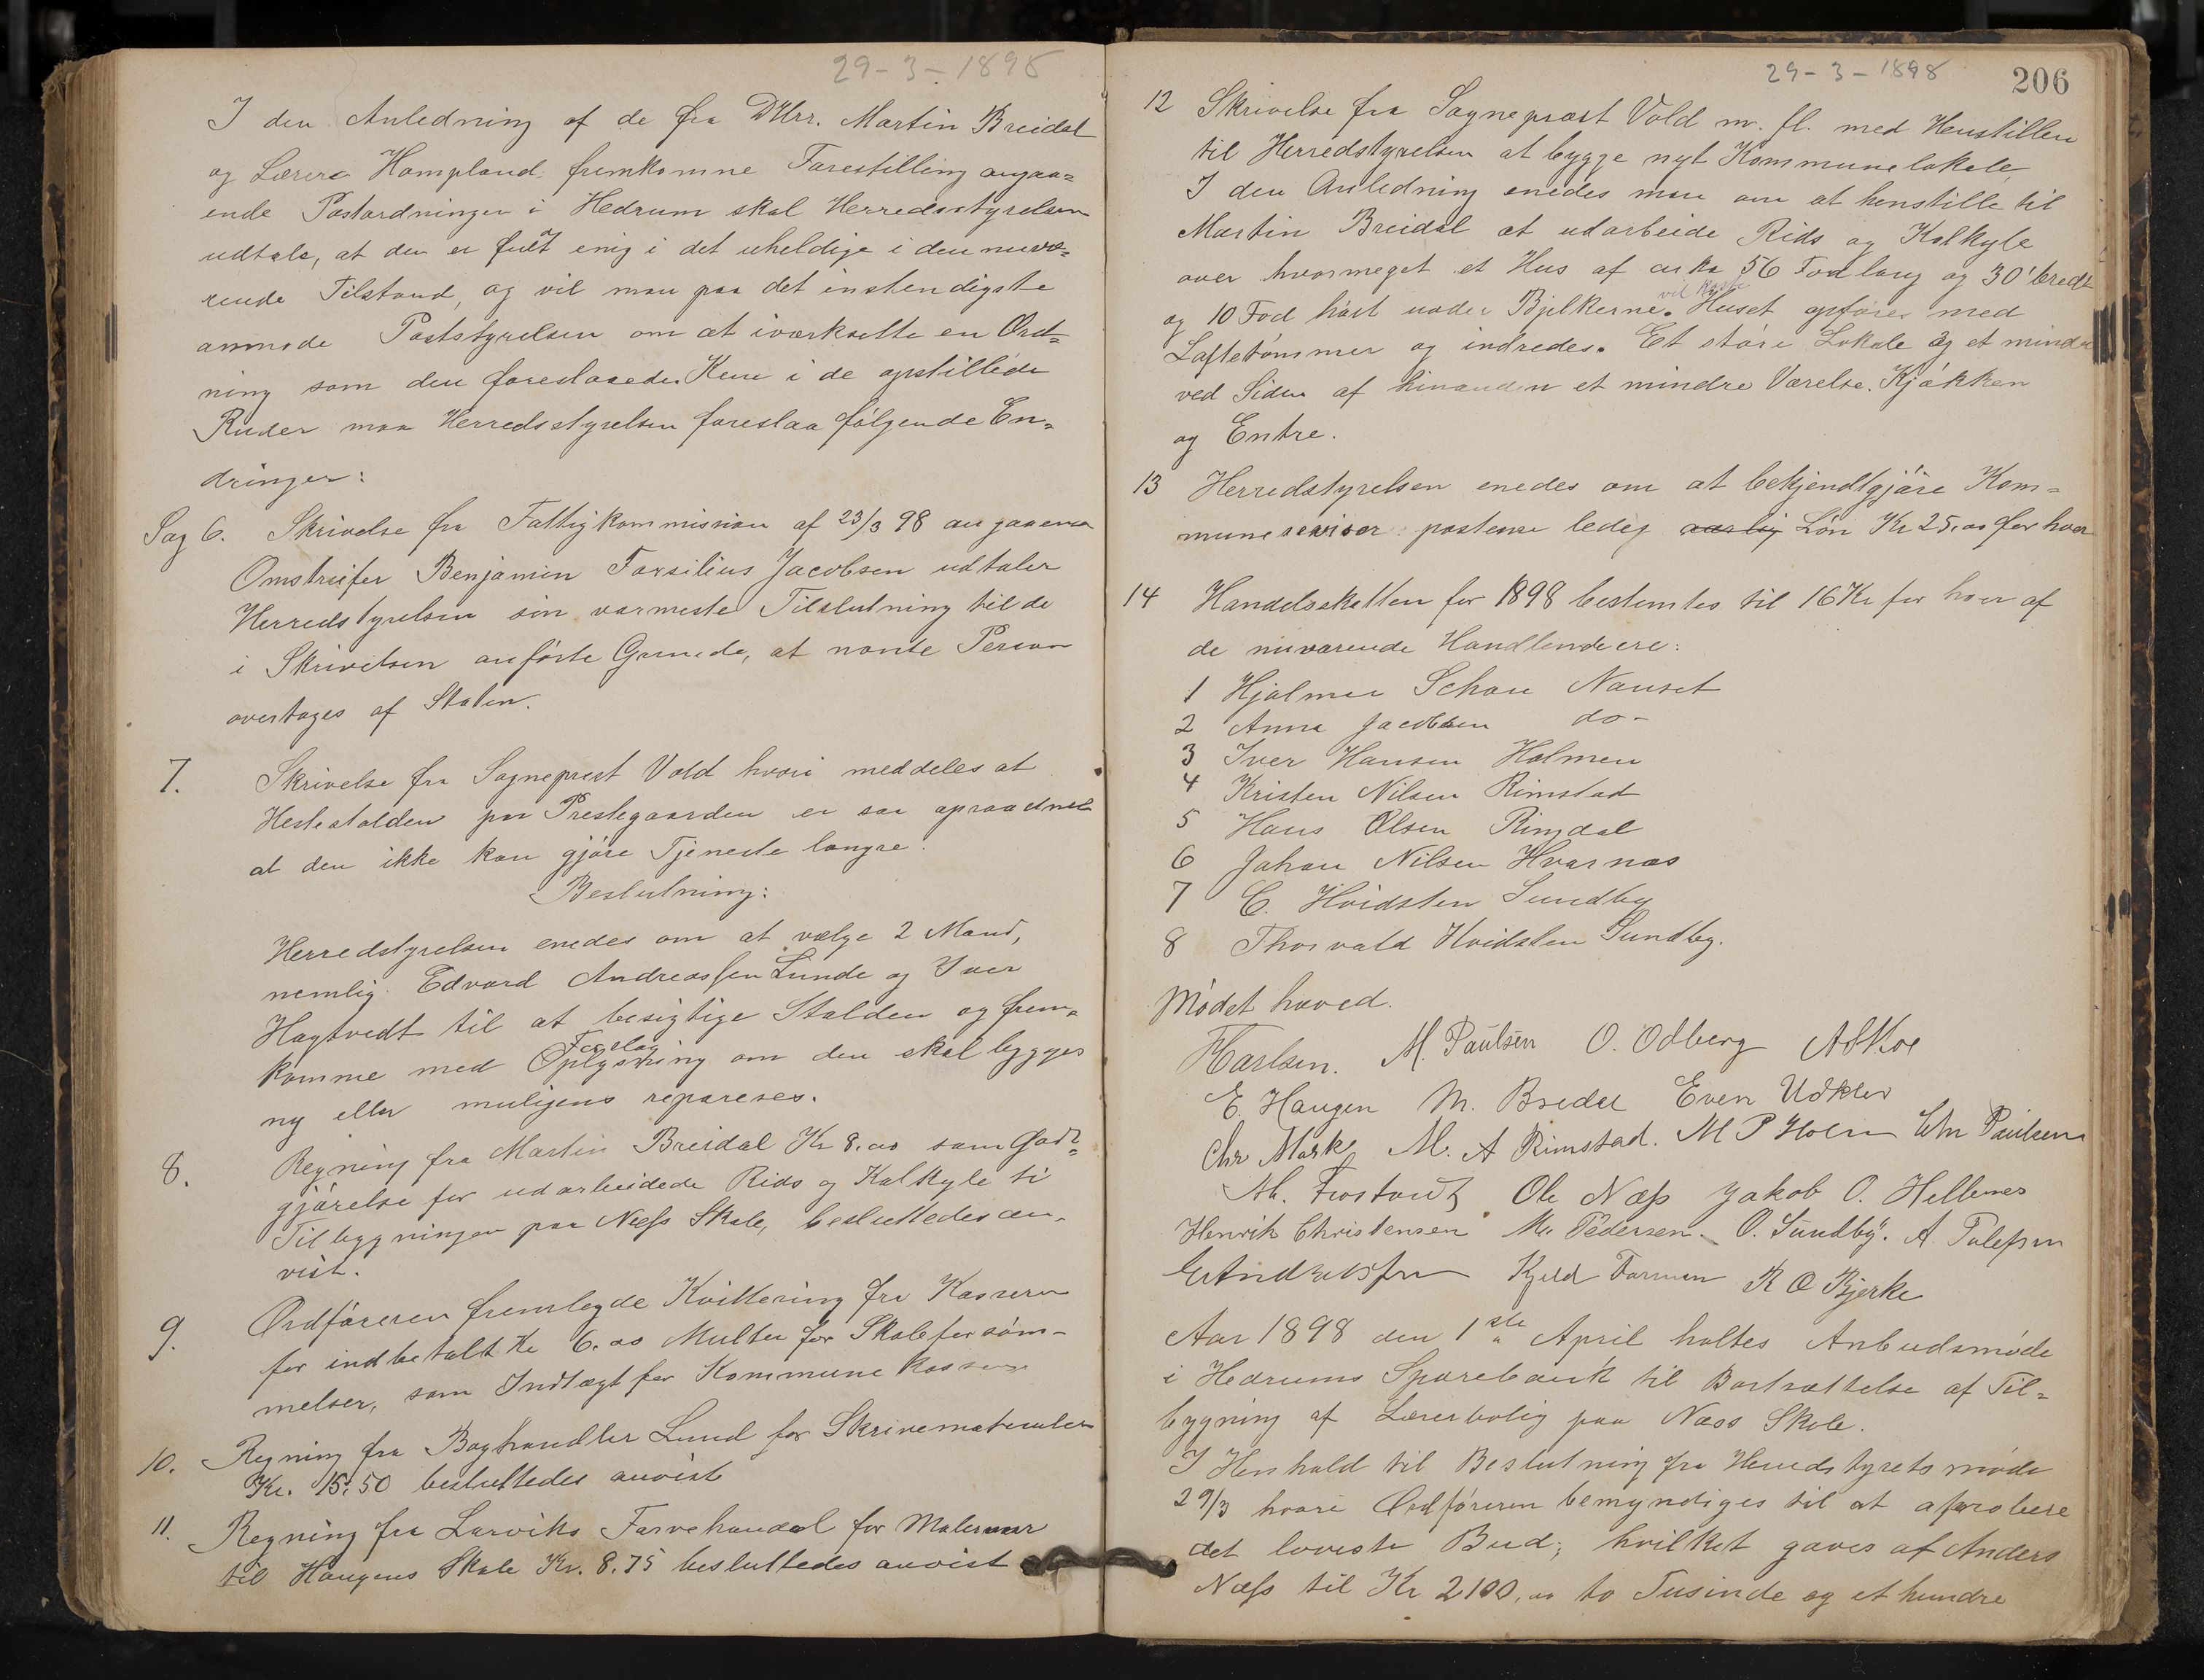 29-3-1898
I den Anledning af de fra DHrr. Martin Breidal
og Lærere Hampland fremkomne Forestilling angaa=
ende Postordninger i Hedrum skal Herredsstyrelsen
udtale, at den er fult enig i det uheldige i den nuvæ=
rende Tilstand, og vil man paa det instendigste
anmode Poststyrelsen om at iværksette en Ord=
ning som den foreslaaede. Kun i de opstillede
Ruder maa Herredsstyrelsen foreslaa følgende En=
dringer:
Sag 6. Skrivelse fra Fattigkommission af 23/3 98 angaaende
Omstreifer Benjamin Jacobsen udtaler
Herredstyrelsen sin varmeste Tilslutning til de
i Skrivelsen anførte Grunde, at nævnte Person
overtages af Staten.
7. Skrivelse fra Sogneprest Vold hvori meddeles at
Hestestalden paa Prestegaarden er saa opraadnet
at den ikke kan gjøre Tjeneste længre.
Beslutning:
Herredstyrelsen enedes om at vælge 2 Mand,
nemlig Edvard Andreassen Lunde og Iver
Hagtvedt til at besigtige Stalden og frem=
Forslag
komme med Oplysning om den skal bygges
ny eller muligens repareres.
8. Regning fra Martin Breidal Kr 8.00 som God=
gjørelse for udarbeidede Rids og Kalkyle ti
Tilbygningen paa Næss Skole, besluttedes an=
vist.
9. Ordføreren fremlegde Kvittering fra Kasseren
for indbetalt Kr 6.00 Multer for Skoleforsøm-
melser, som Indtægt for Kommunekassen
10. Regning fra Boghandler Lund for Skrivematerialer
Kr. 15.50 besluttedes anvist
11. Regning fra Larviks Farvehandel for Malervar
til Haugens Skole Kr. 8.75 besluttedes anvist
29-3-1898
206
12 Skrivelse fra Sogneprest Vold m. fl. med Henstillen
til Herredstyrelsen at bygge nyt Kommunelokale
I den Anledning enedes man om at henstille til
Martin Breidal at udarbeide Rids og Kalkyle
over hvormeget et Hus af cirka 56 Fod lang og 30' bredt
vil koste
og 10 Fod høit under Bjelkerne. Huset opføres med
Laftetømmer og indredes. Et støre Lokale og et mindre
ved Siden af hinanden et mindre Værelse. Kjøkken
og Entre.
13 Herredstyrelsen enedes om at bekjendtgjøre Kom=
munerevisor postene ledig aarlig Løn Kr 25.00 for hver
14 Handelsskatten for 1898 bestemtes til 16 Kr for hver af
de nuværende Handlendeere:
1 Hjalmar Schau Nauset
2 Anna Jacobsen do-
3 Iver Hansen Holmen
4 Kristen Nilsen Rimstad
5 Hans Olsen Ringdal
6 Johan Nilsen Hvarnæs
7 C. Hvidsten Sundby
8 Thorvald Hvidsten Sundby.
Mødet hæved.
FKarlsen. M. Paulsen O. Odberg
E. Haugen M. Bredal Even Udklev
Chr Mørk M. A Rimstad. M P Holm Chr Paulsen
Ole Næss Jakob O. Hellenes
Henrik Christensen M. Pedersen. O. Sundby. A.
Kjeld Farmen R O Bjerke
Aar 1898 den 1ste April holtes Anbudsmøde
i Hedrums Sparebank til Bortsættelse af Til=
bygning af Lærerbolig paa Næss Skole.
I Henhold til Beslutning fra Herredstyrets møde
29/3 hvori Ordføreren bemyndiges til at aprobere
det laveste Bud; hvilket gaves af Anders
Næss til Kr 2100,00 to Tusinde og et hundre